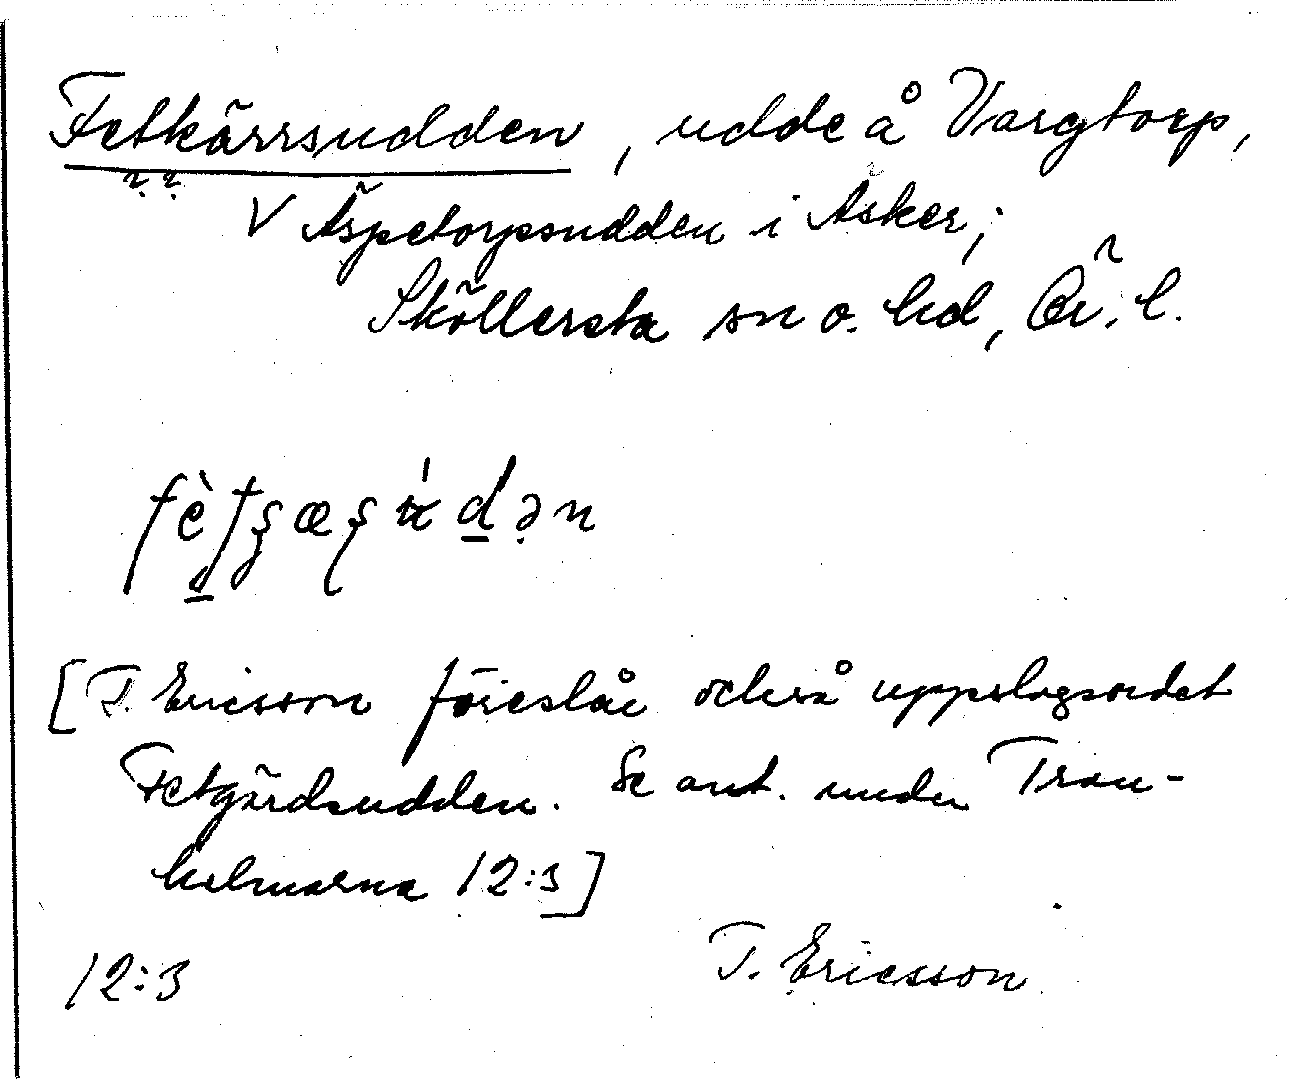 Fetkärrsudden, udde å Vargtorp,
?? V Äspetorpsudden i Asker;
Sköllersta sn o. hd, Ör. l.
[T. Ericsson föreslår också uppslagsordet
Fetgärdsudden. Se ant. under Tran-
holmarna 12:3]
12:3 T. Ericsson